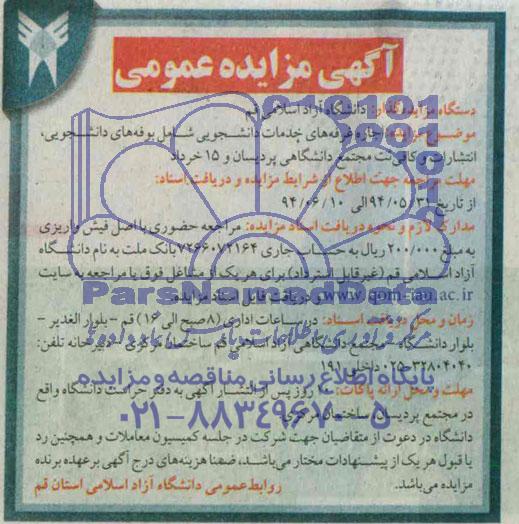 آگهی مزایده عمومی
دستگاه مزایده گذار: دانشگاه آزاد اسلامی قم
موضوع مزایده: اجاره غرفه‌های خدمات دانشجویی شامل بوفه‌های دانشجویی،
انتشارات و کافی‌نت مجتمع دانشگاهی پردیسان و ۱۵ خرداد
مهلت مراجعه جهت اطلاع از شرایط مزایده و دریافت اسناد:
از تاریخ ۹۴/۰۵/۳۱ الی ۹۴/۰۶/۱۰
مدارک لازم و نحوه دریافت اسناد مزایده: مراجعه حضوری با اصل فیش واریزی
به مبلغ ۲۰۰/۰۰۰ ریال به حساب جاری ۷۲۶۶۰۷۲۱۶۴ بانک ملت به نام دانشگاه
آزاد اسلامی قم (غیرقابل استرداد) برای هر یک از مشاغل فوق یا مراجعه به سایت
www.qom-iau.ac.ir و دریافت فایل اسناد مزایده.
زمان و محل دریافت اسناد: در ساعات اداری (۸ صبح الی ۱۶) قم - بلوار الغدیر -
بلوار دانشگاه - مجتمع دانشگاهی آزاد اسلامی قم ساختمان مرکزی - دبیرخانه تلفن:
۰۲۵-۳۲۸۰۴۰۴۰ داخلی ۱۹۱
مهلت و محل ارائه پاکات: ۱۰ روز پس از انتشار آگهی به دفتر حراست دانشگاه واقع
در مجتمع پردیسان ساختمان مرکزی.
دانشگاه در دعوت از متقاضیان جهت شرکت در جلسه کمیسیون معاملات و همچنین رد
یا قبول هر یک از پیشنهادات مختار می‌باشد، ضمنا هزینه‌های درج آگهی بر عهده برنده
مزایده می‌باشد.
روابط عمومی دانشگاه آزاد اسلامی استان قم
ParsNamadData
پایگاه اطلاع رسانی مناقصه و مزایده
۰۲۱-۸۸۳۴۹۶۷۰-۵